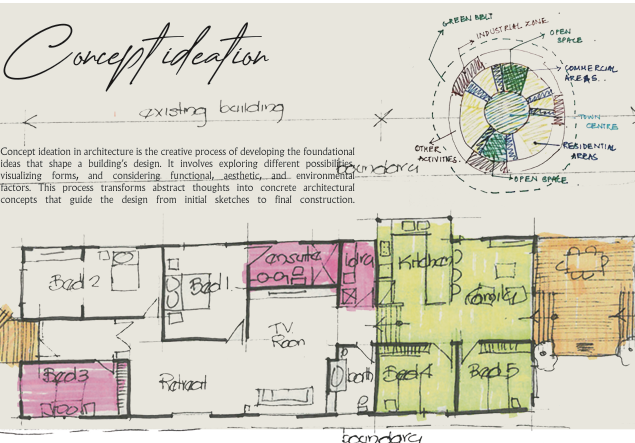 Concept ideation
existing building
Concept ideation in architecture is the creative process of developing the foundational
ideas that shape a building's design. It involves exploring different possibilities,
visualizing forms, and considering functional, aesthetic, and environmental
factors. This process transforms abstract thoughts into concrete architectural
concepts that guide the design from initial sketches to final construction.
boundary
GREEN BELT
INDUSTRIAL ZONE
OPEN
SPACE
COMMERCIAL
AREAS.
TOWN
CENTRE
RESIDENTIAL
AREAS
OTHER
ACTIVITIES.
OPEN SPACE
Bed 2
Bed 1
ensuite
Kitchen
family
TV
Room
Bed 3
Retreat
bath
Bed 4
Bed 5
boundary